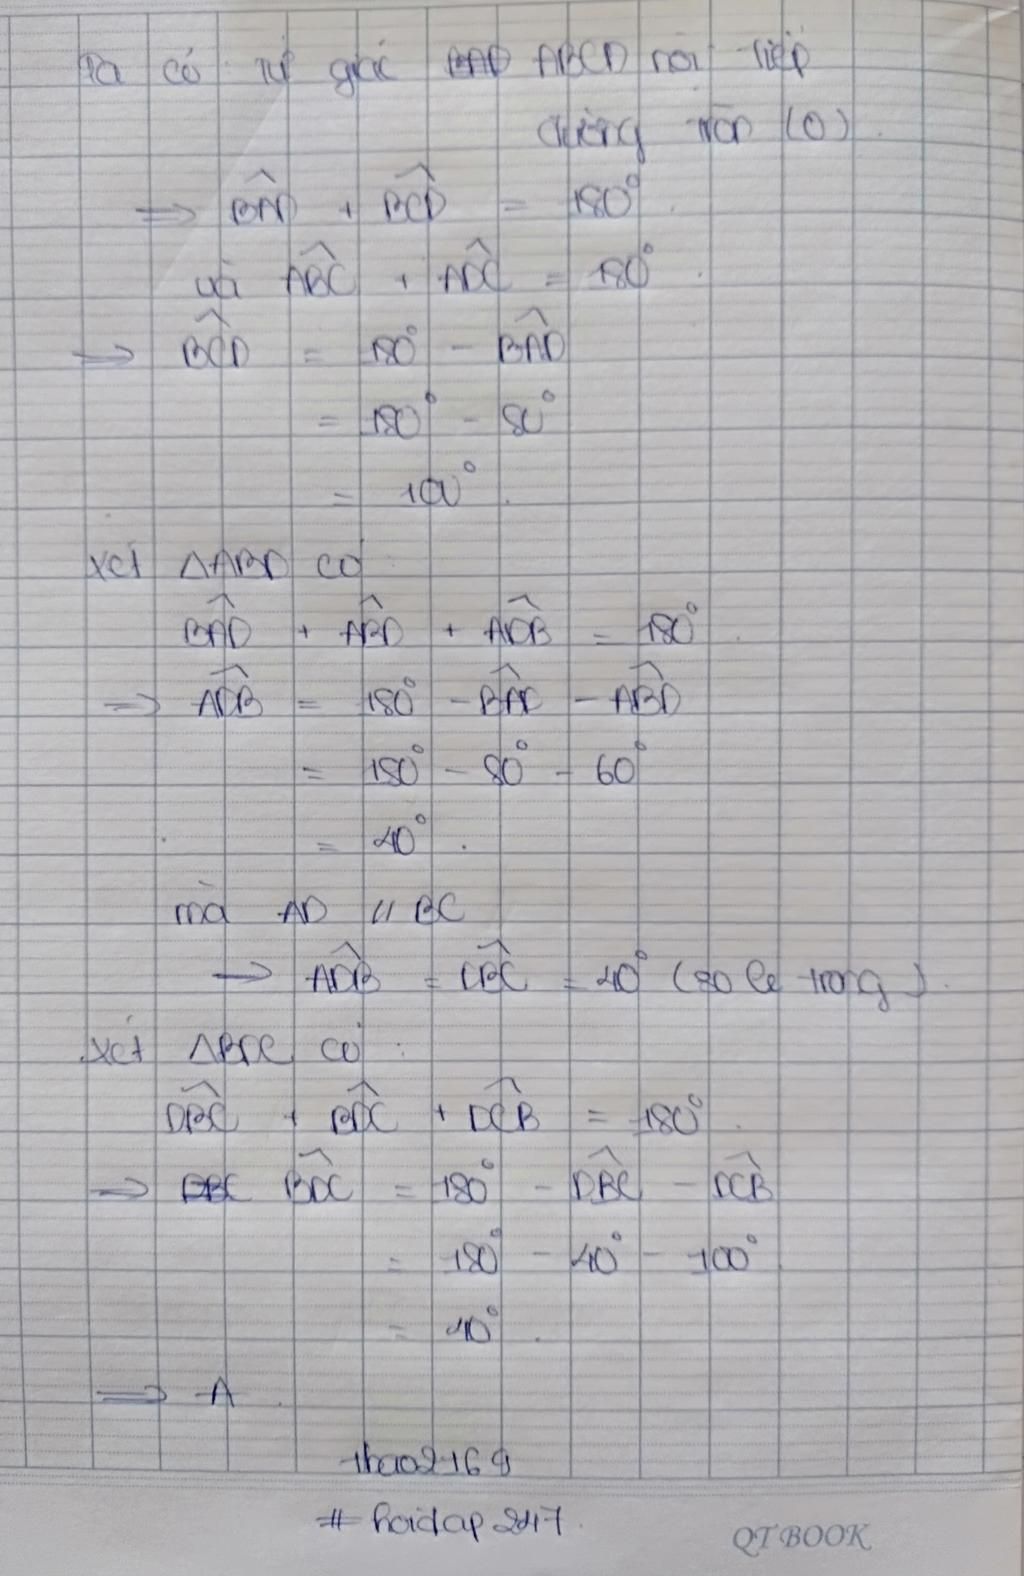 Ta có tứ giác BAD ABCD nội tiếp
đường tròn (O).
=> \widehat{BAD} + \widehat{BCD} = 180°.
và \widehat{ABC} + \widehat{ADC} = 180°.
=> \widehat{BCD} = 180° - \widehat{BAD}
= 180° - 80°
= 100°.
Xét ΔABD có
\widehat{BAD} + \widehat{ABD} + \widehat{ADB} = 180°.
=> \widehat{ADB} = 180° - \widehat{BAD} - \widehat{ABD}
= 180° - 80° - 60°
= 40°.
mà AD // BC
=> \widehat{ADB} = \widehat{DBC} = 40° (so le trong).
Xét ΔBDC có:
\widehat{DBC} + \widehat{BDC} + \widehat{DCB} = 180°.
=> DBC \widehat{BDC} = 180° - \widehat{DBC} - \widehat{DCB}
= 180° - 40° - 100°
= 40°.
=> A.
thao2169
# hoidap247.
QTBOOK